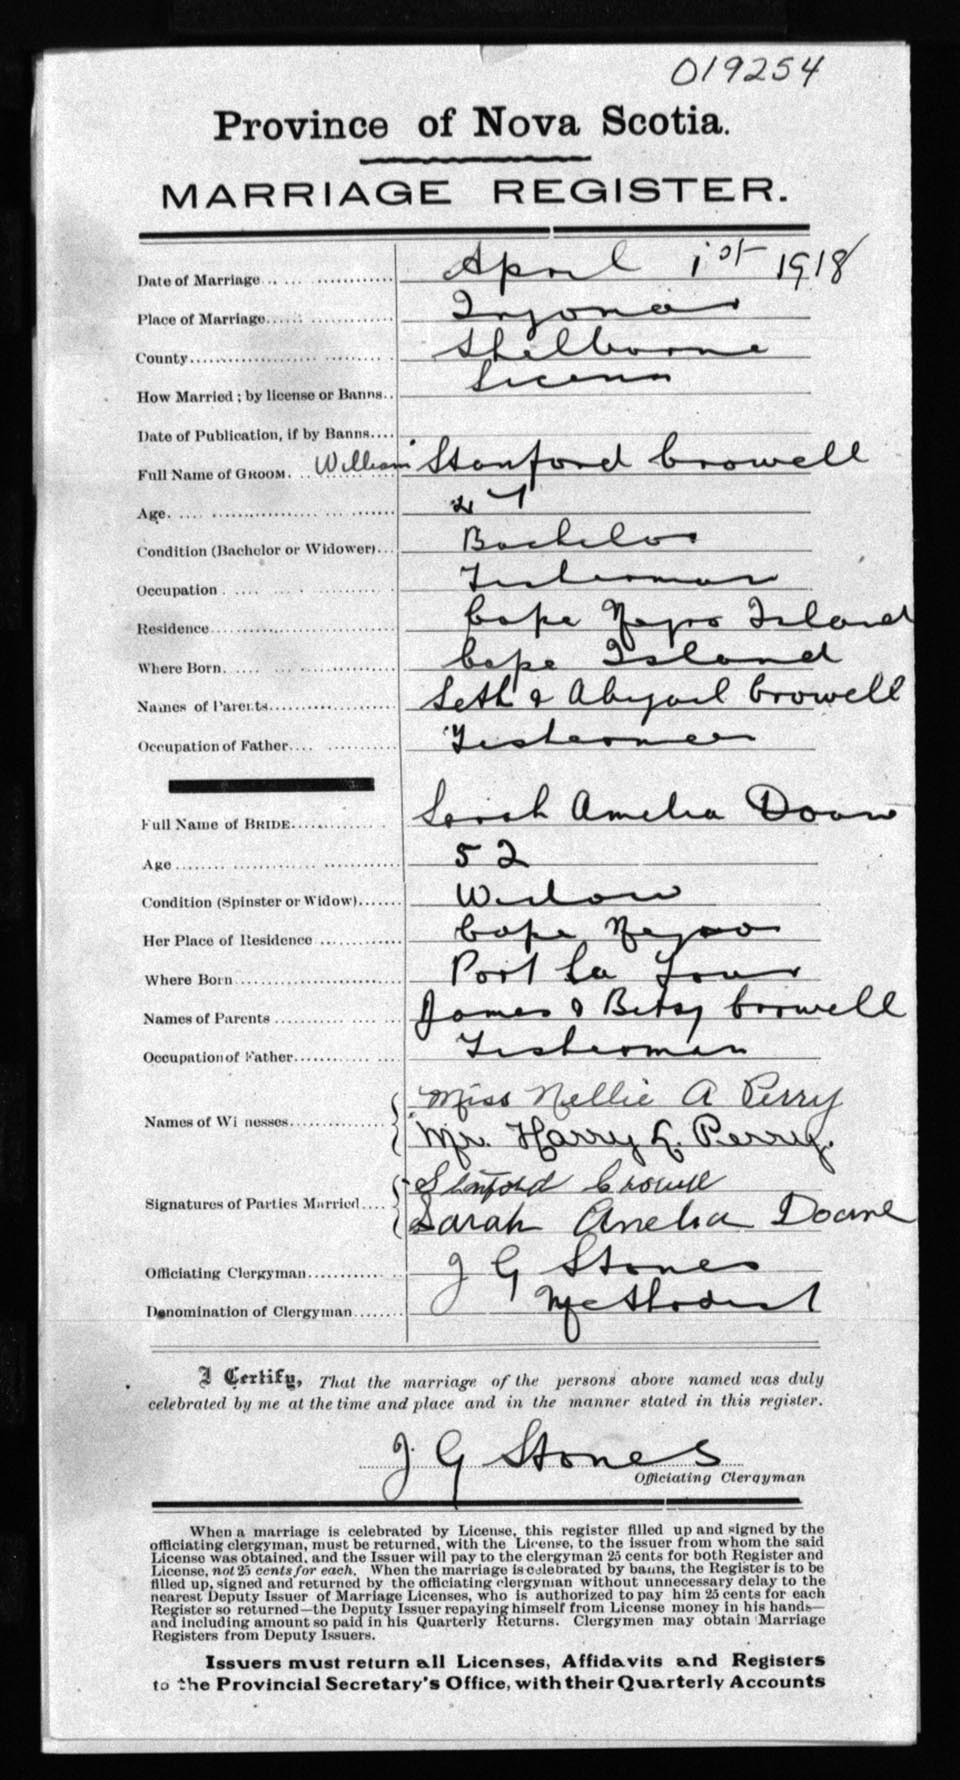 019254
Province of Nova Scotia.
MARRIAGE REGISTER.
Date of Marriage April 1st 1918
Place of Marriage Ingomar
County Shelburne
How Married ; by license or Banns License
Date of Publication, if by Banns
Full Name of GROOM. William Stanford Crowell
Age
Condition (Bachelor or Widower) Bachelor
Occupation Fisherman
Residence Cape Negro Island
Where Born Cape Island
Names of Parents Seth & Abigail Crowell
Occupation of Father Fisherman
Full Name of BRIDE Sarah Amelia Doane
Age 52
Condition (Spinster or Widow) Widow
Her Place of Residence Cape Negro
Where Born Port La Tour
Names of Parents James & Betsy Crowell
Occupation of Father Fisherman
Names of Witnesses Miss Nellie A Perry
Mr. Harry L. Perry.
Signatures of Parties Married Stanford Crowell
Sarah Amelia Doane
Officiating Clergyman J G Stones
Denomination of Clergyman Methodist
I Certify, That the marriage of the persons above named was duly
celebrated by me at the time and place and in the manner stated in this register.
J. G Stones
Officiating Clergyman
When a marriage is celebrated by License, this register filled up and signed by the
officiating clergyman, must be returned, with the License, to the issuer from whom the said
License was obtained, and the Issuer will pay to the clergyman 25 cents for both Register and
License, not 25 cents for each. When the marriage is celebrated by banns, the Register is to be
filled up, signed and returned by the officiating clergyman without unnecessary delay to the
nearest Deputy Issuer of Marriage Licenses, who is authorized to pay him 25 cents for each
Register so returned—the Deputy Issuer repaying himself from License money in his hands—
and including amount so paid in his Quarterly Returns. Clergymen may obtain Marriage
Registers from Deputy Issuers.
Issuers must return all Licenses, Affidavits and Registers
to the Provincial Secretary's Office, with their Quarterly Accounts